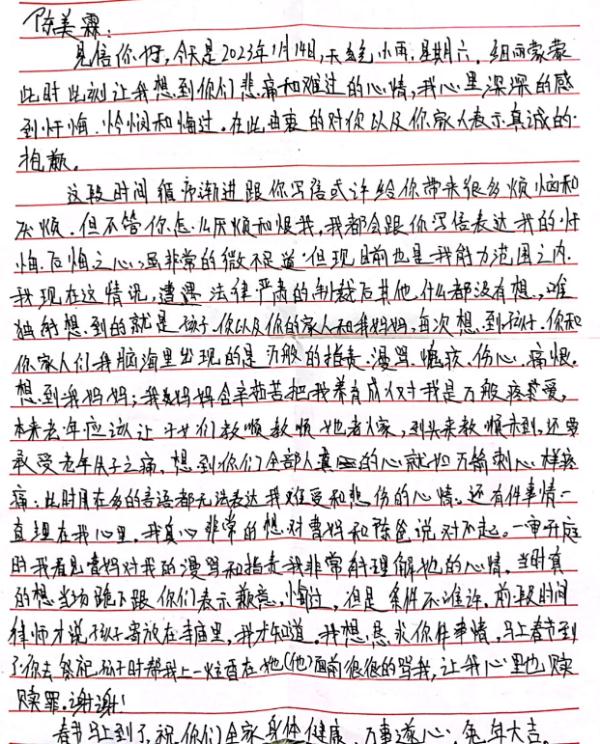 陈美霖:
见信你好,今天是2023年1月14日,天气小雨,星期六,细雨蒙蒙
此时此刻让我想到你们悲痛和难过的心情,我心里深深的感
到忏悔、怜悯和悔过。在此由衷的对你以及你家人表示真诚的
抱歉。
这段时间循序渐进跟你写信或许给你带来很多烦恼和
厌烦。但不管你怎么厌烦和恨我,我都会跟你写信表达我的忏
悔、后悔之心,虽非常的微不足道,但现目前也是我能力范围之内。
我现在这情况,遭遇法律严肃的制裁后其他什么都没有想,唯
独能想到的就是孩子、你以及你的家人和我妈妈,每次想到孩子、你和
你家人们我脑海里出现的是万般的指责、漫骂、憔疾、伤心、痛恨。
想到我妈妈;我妈妈含辛茹苦把我养育成仅对我是万般疼爱,
本来老年应该让子女们教顺教顺她老人家,到头来教顺未到,还要
承受老年失子之痛,想到你们全部人真的心就如万箭刺心样疼
痛;此时用在多的言语都无法表达我难受和悲伤的心情。还有件事情一
直埋在我心里,我真心非常的想对曹妈和陈爸说对不起。一审开庭
时我看见曹妈对我的漫骂和指责我非常能理解她的心情,当时真
的想当场跪下跟你们表示歉意、悔过,但是条件不准许,前段时间
律师才说孩子寄放在寺庙里,我才知道。我想恳求你件事情,马上春节到
了你去祭祀孩子时帮我上一炷香在她(他)面前狠狠的骂我,让我心里也赎
赎罪。谢谢!
春节马上到了,祝你们全家身体健康、万事遂心、兔年大吉。